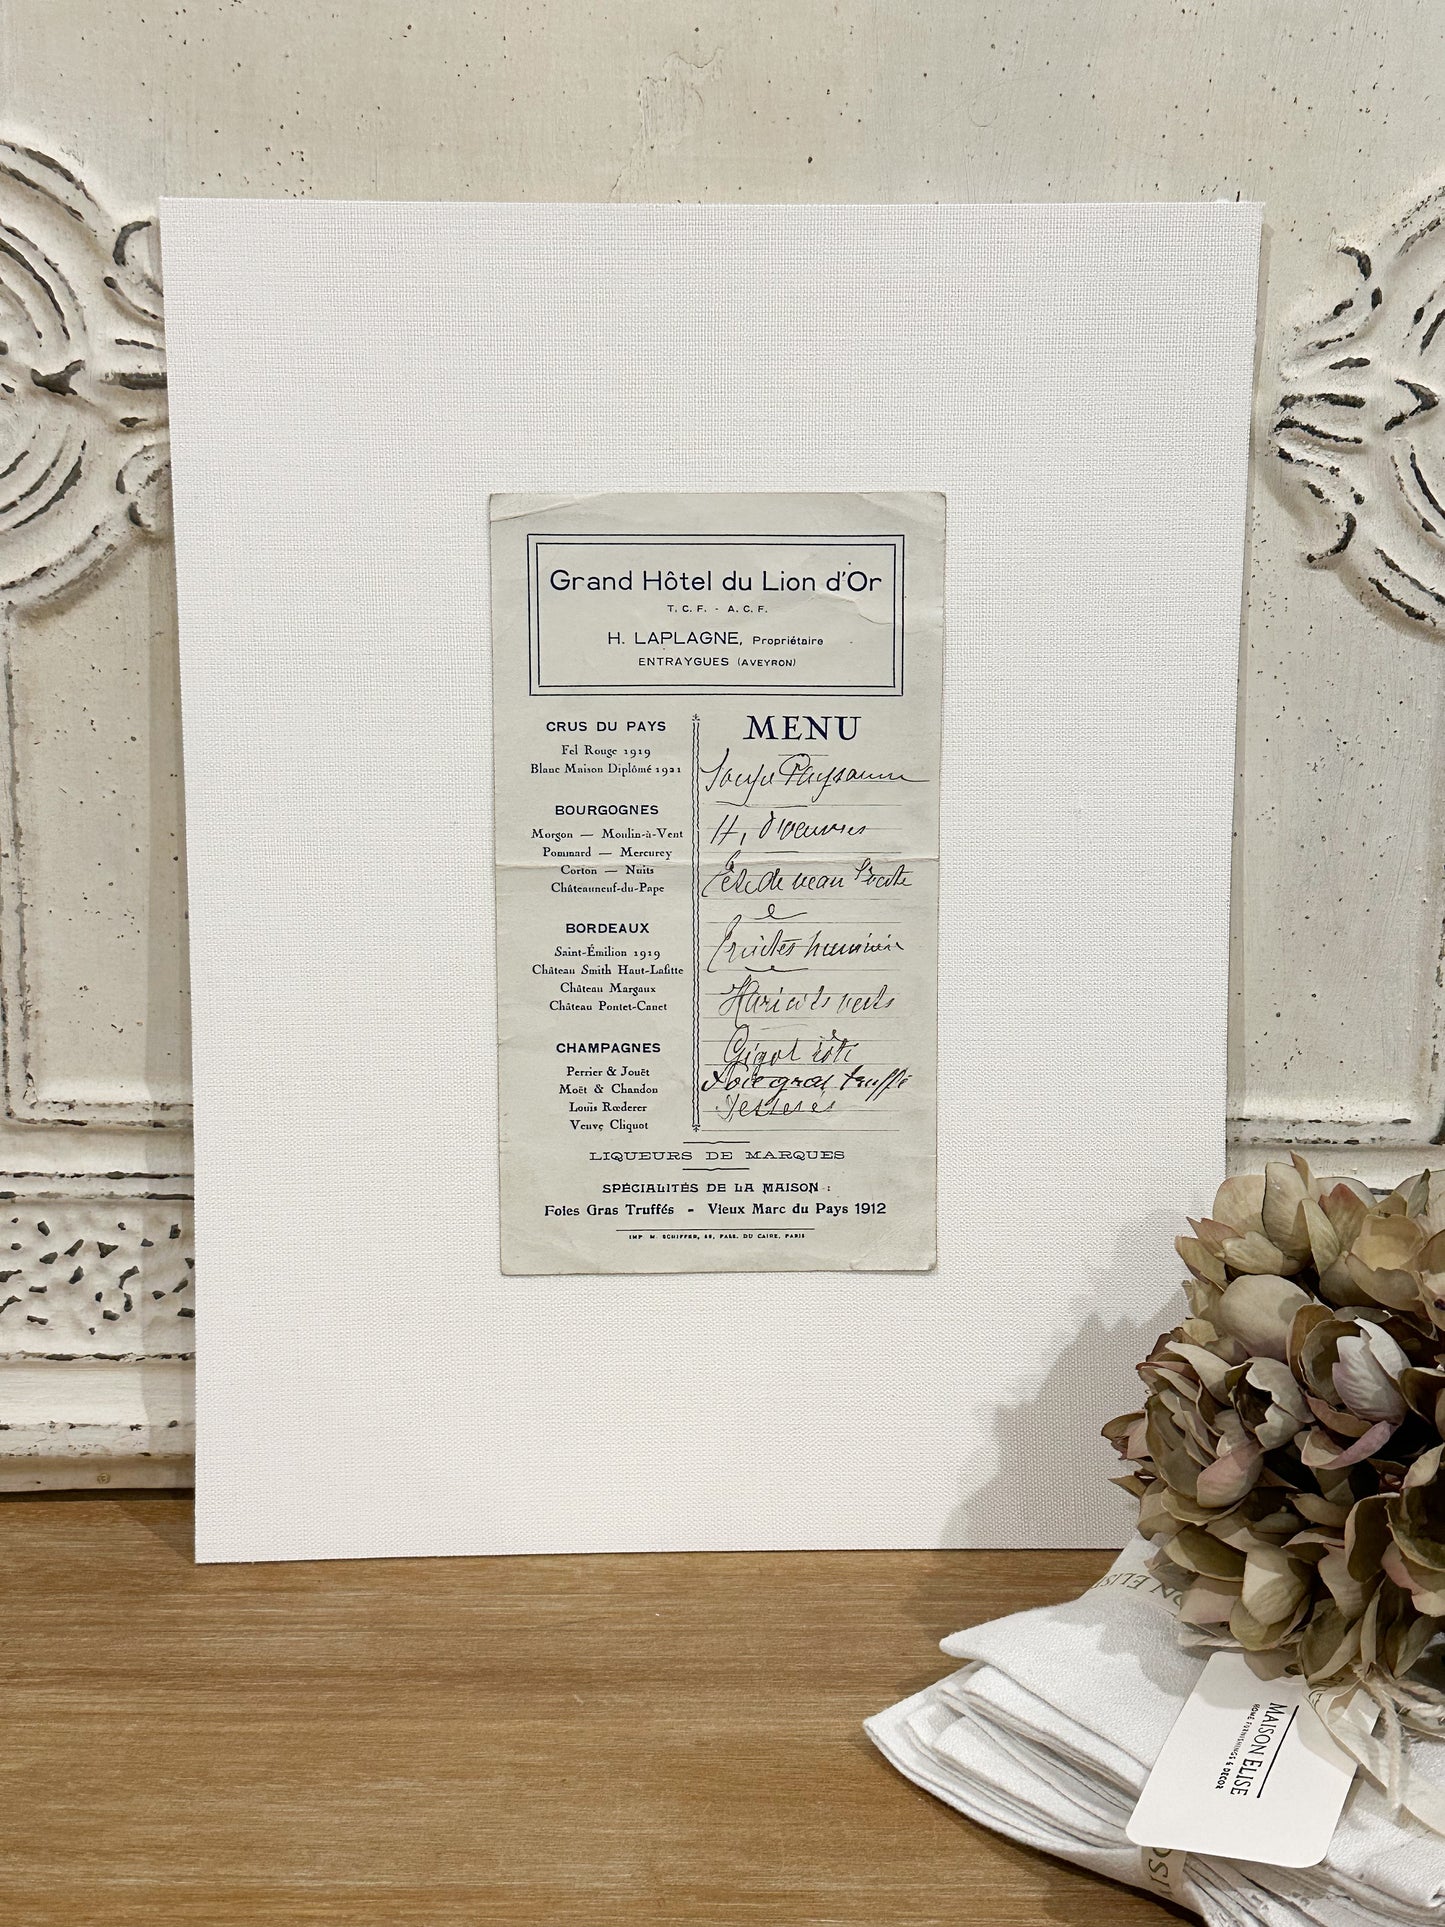 Grand Hôtel du Lion d'Or
T. C. F. - A. C. F.
H. LAPLAGNE, Propriétaire
ENTRAYGUES (AVEYRON)
CRUS DU PAYS
Fel Rouge 1919
Blanc Maison Diplômé 1921
BOURGOGNES
Morgon — Moulin-à-Vent
Pommard — Mercurey
Corton — Nuits
Châteauneuf-du-Pape
BORDEAUX
Saint-Émilion 1919
Château Smith Haut-Lafitte
Château Margaux
Château Pontet-Canet
CHAMPAGNES
Perrier & Jouët
Moët & Chandon
Louis Rœderer
Veuve Cliquot
MENU
Soupe Paysanne
H. d'oeuvres
Tête de veau
Truites
Haricots verts
Gigot rôti
Foie gras truffé
Desserts
LIQUEURS DE MARQUES
SPÉCIALITÉS DE LA MAISON :
Foies Gras Truffés - Vieux Marc du Pays 1912
IMP. M. SCHIFFER, PASS. DU CAIRE, PARIS
MAISON ELISE
HOME FURNISHINGS & DECOR